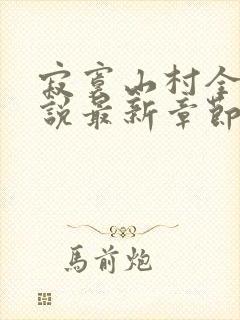 寂寞山村全
說最新章節
馬前炮